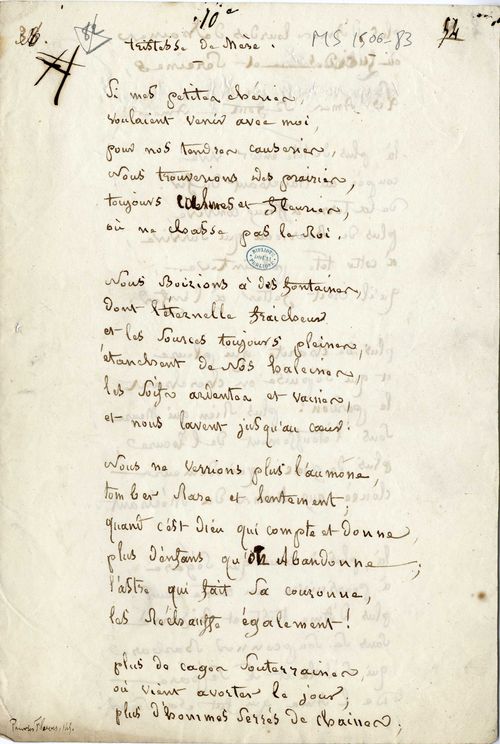 10e
54
MS 1506-83
tristesse de Mere.
Si mes petites chéries,
voulaient venir avec moi,
pour nos tendres causeries,
Nous trouverions des prairies,
toujours calmes et fleuries,
où ne chasse pas le Roi.
BIBLIOTH.
DOUAI
PUBLIQUE
Nous Boirions à des fontaines,
dont l'éternelle fraicheur
et les sources toujours pleines,
étanchent de Nos haleines,
les soifs ardentes et vaines,
et nous lavent jusqu'au cœur.
Nous ne verrions plus l'aumone,
tomber Rare et lentement;
quand c'est dieu qui compte et donne,
plus d'enfans qu'on Abandonne;
l'astre qui fait Sa couronne,
les Réchauffe également!
plus de cages Souterraines,
où vient avorter le jour;
plus d'hommes Serrés de chaines;